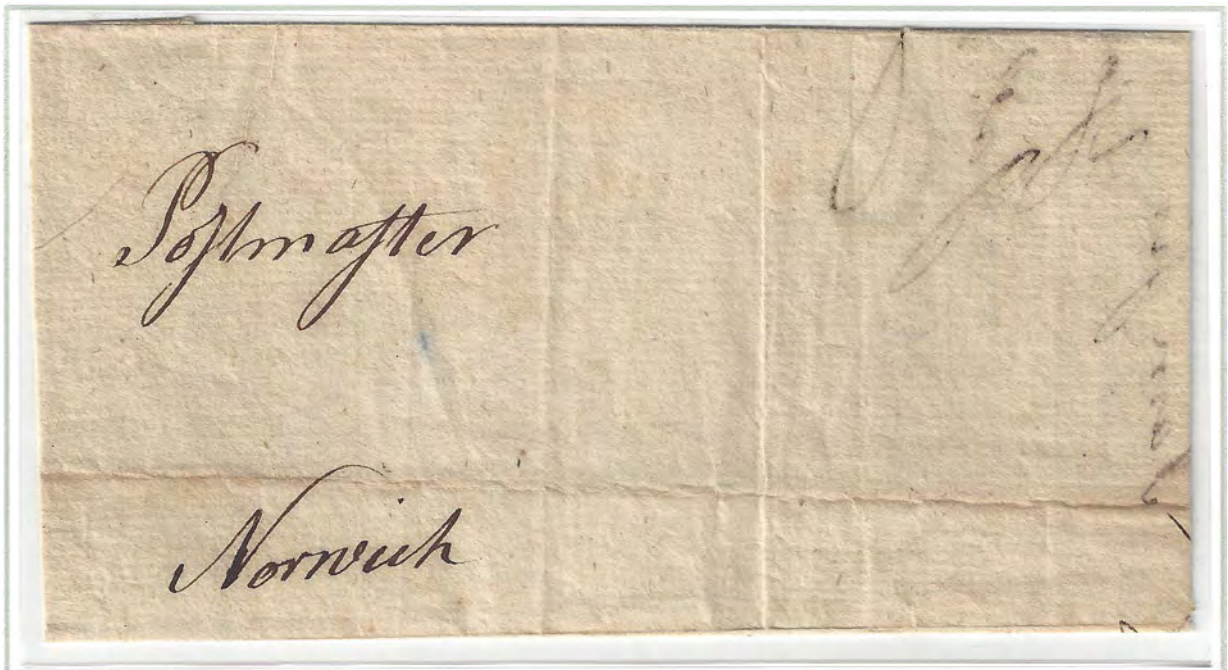 Poſtmaſter
Norwich